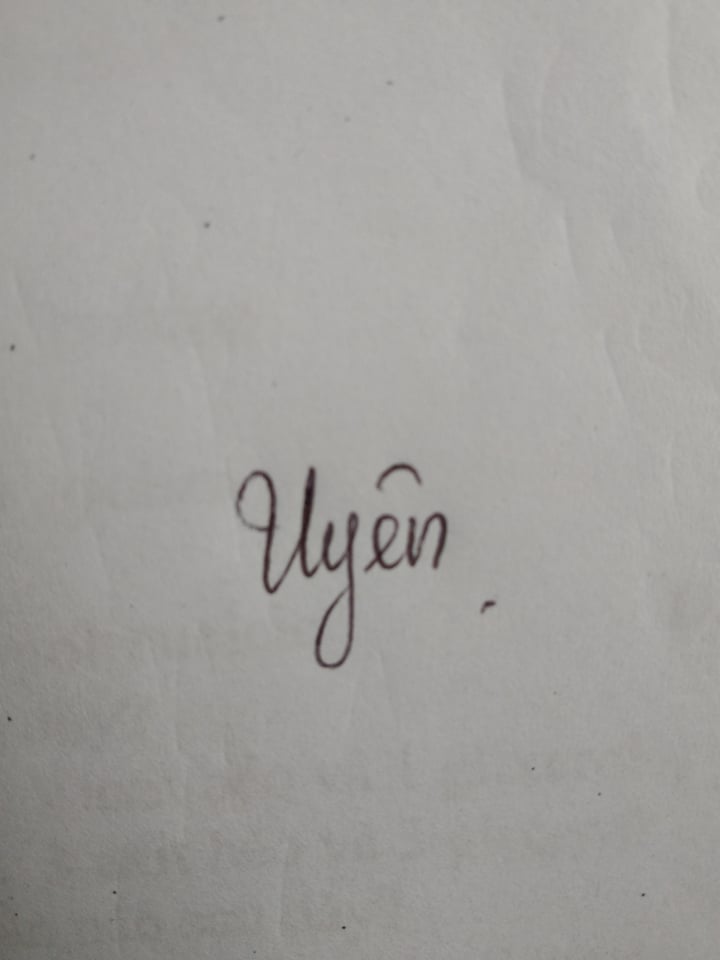 Uyên